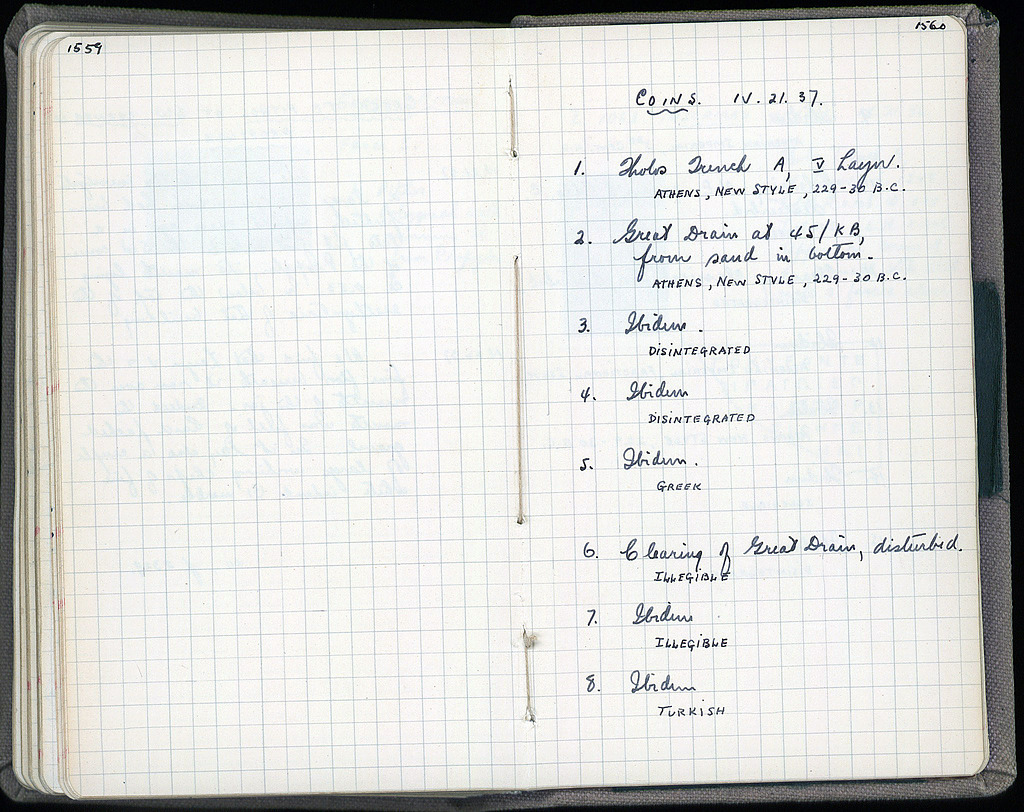 1559
1560
COINS. IV. 21. 37.
1. Tholos Trench A, V Layer.
ATHENS, NEW STYLE, 229-30 B.C.
2. Great Drain at 45/KB,
from sand in bottom.
ATHENS, NEW STYLE, 229-30 B.C.
3. Ibidem.
DISINTEGRATED
4. Ibidem
DISINTEGRATED
5. Ibidem.
GREEK
6. Clearing of Great Drain, disturbed.
ILLEGIBLE
7. Ibidem
ILLEGIBLE
8. Ibidem
TURKISH